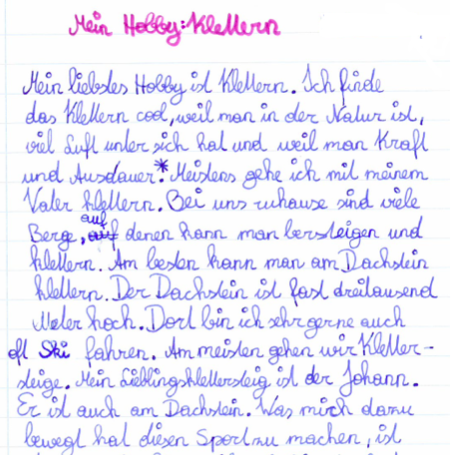 Mein Hobby: Klettern
Mein liebstes Hobby ist Klettern. Ich finde
das Klettern cool, weil man in der Natur ist,
viel Luft unter sich hat und weil man Kraft
und Ausdauer.* Meistens gehe ich mit meinem
Vater klettern. Bei uns zuhause sind viele
Berge, auf denen kann man bersteigen und
klettern. Am besten kann man am Dachstein
klettern. Der Dachstein ist fast dreitausend
Meter hoch. Dort bin ich sehr gerne auch
oft Ski fahren. Am meisten gehen wir Kletter-
steige. Mein Lieblingsklettersteig ist der Johann.
Er ist auch am Dachstein. Was mich dazu
bewegt hat diesen Sport zu machen, ist